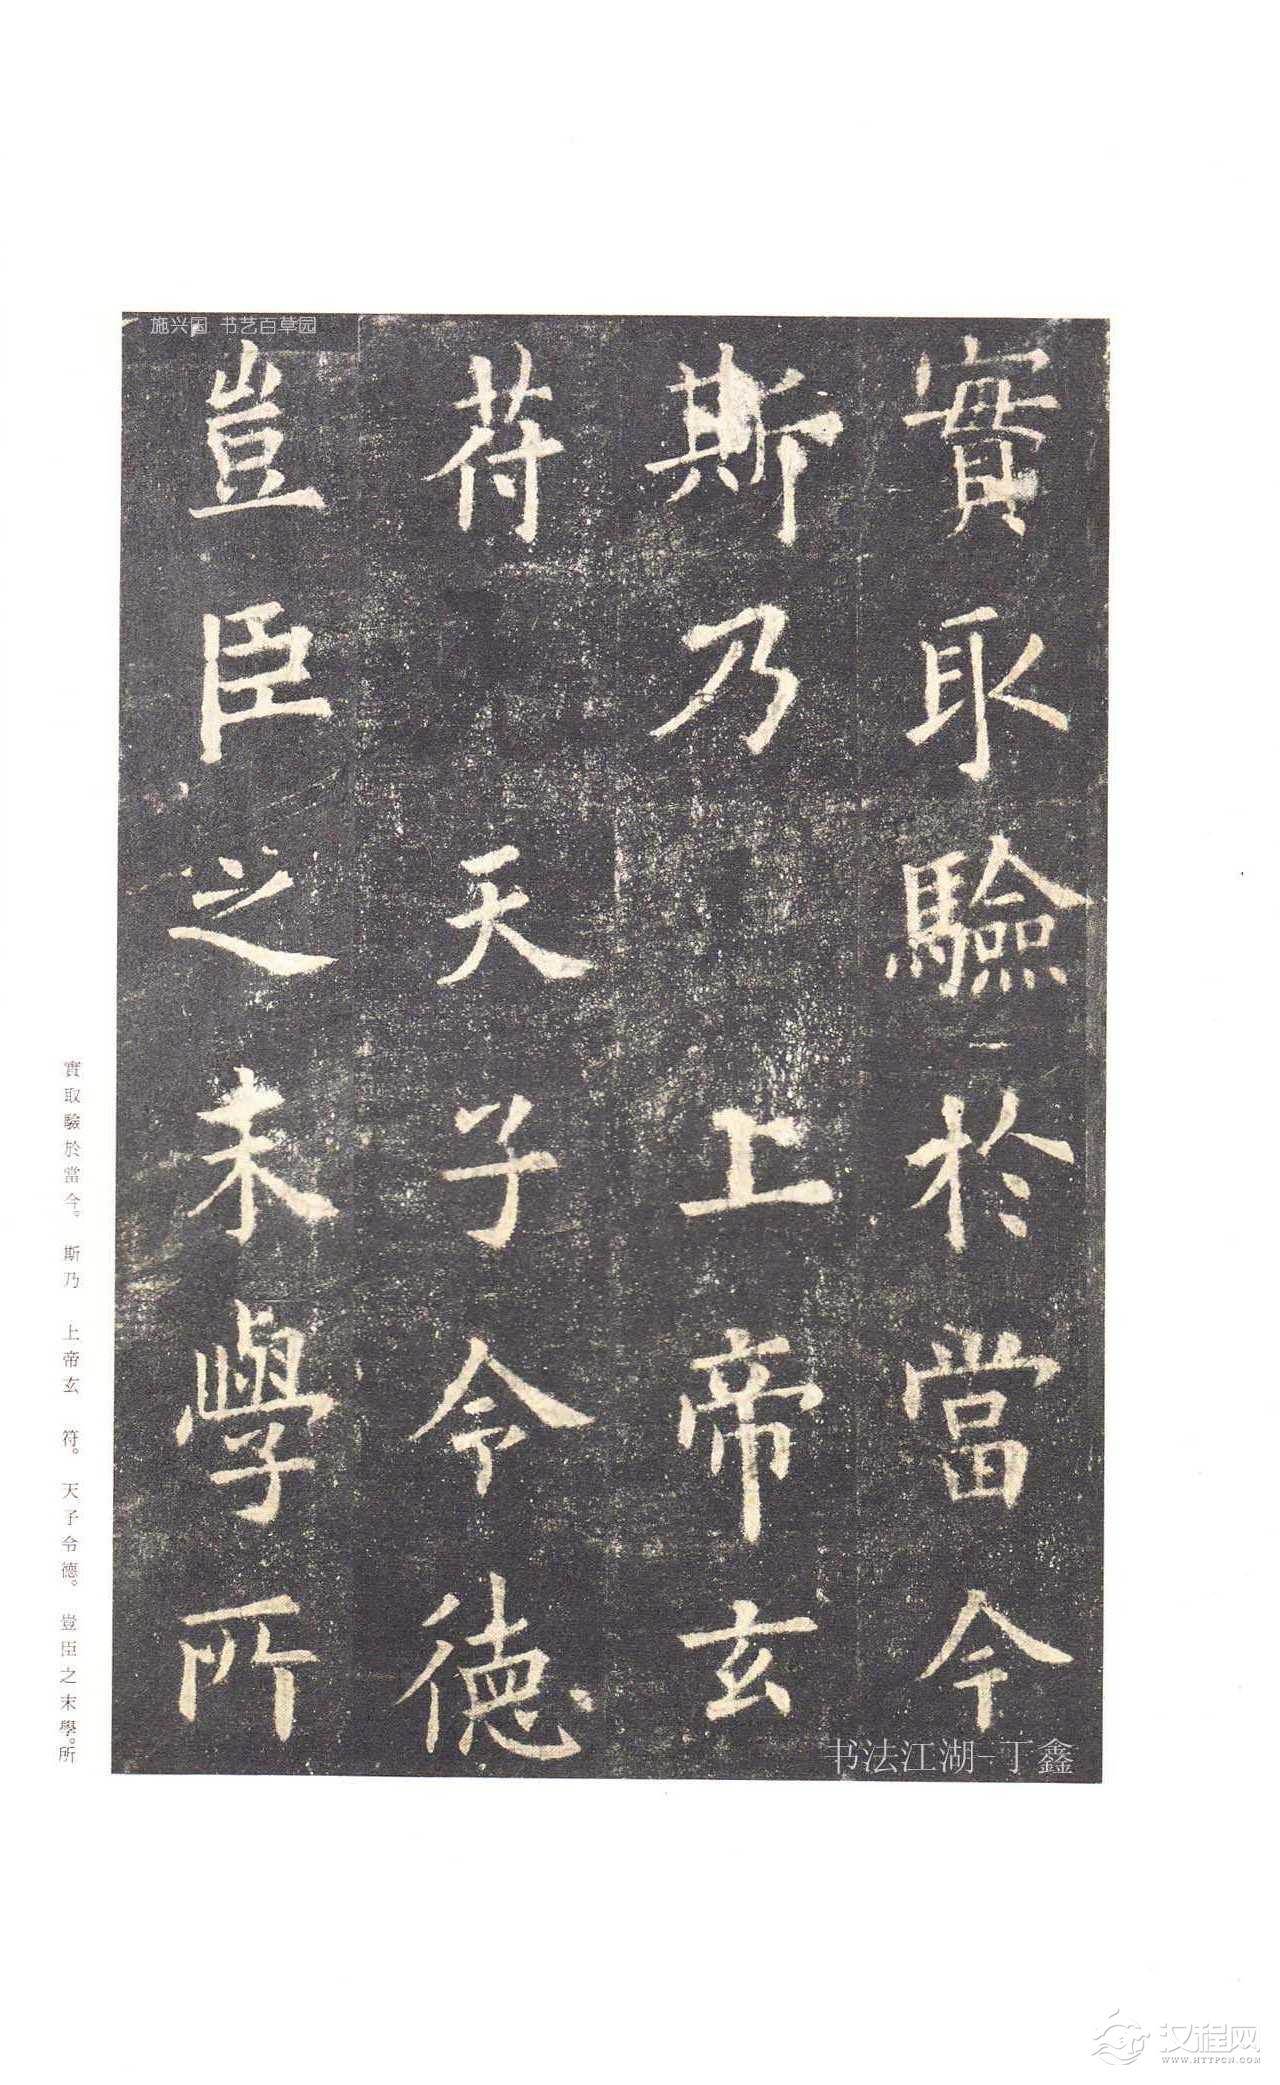 實取驗於當今
斯乃 上帝玄
苻 天子令德
豈臣之末學所
實取驗於當今。斯乃 上帝玄 符。天子令德。豈臣之末學。所
施兴国 书艺百草园
书法江湖-丁鑫
汉程网
WWW.HTTPCN.COM